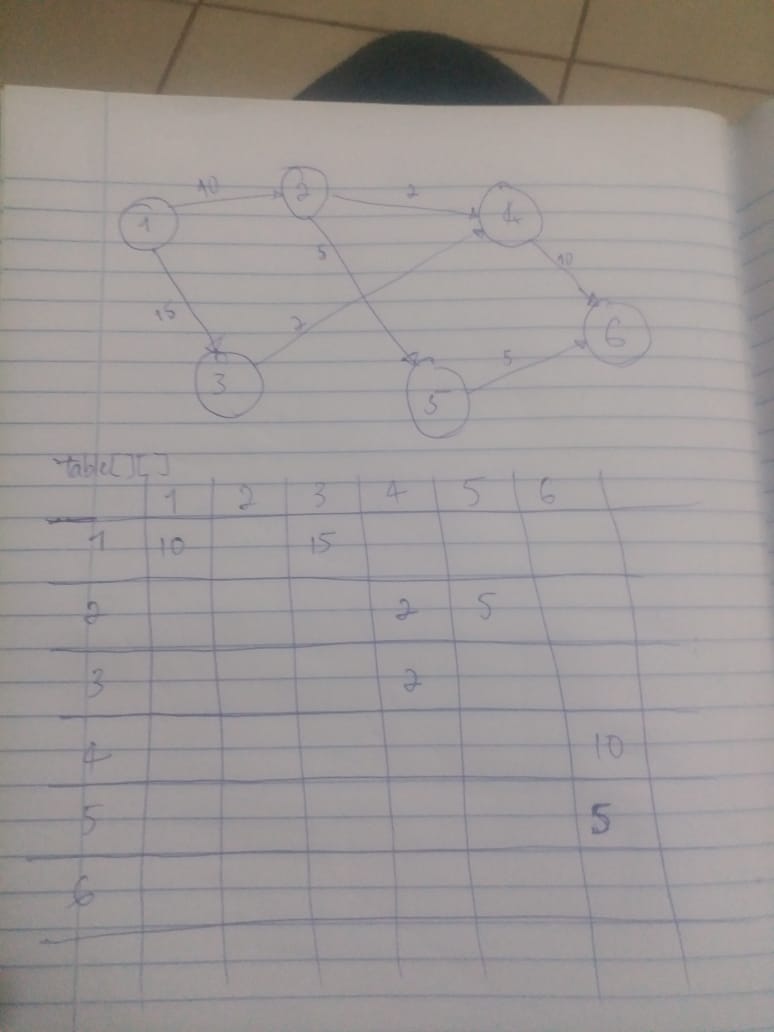 10 2 2
1 4
5 10
15 2
6
3 5 5
table[][]
1 2 3 4 5 6
1 10 15
2 2 5
3 2
4 10
5 5
6